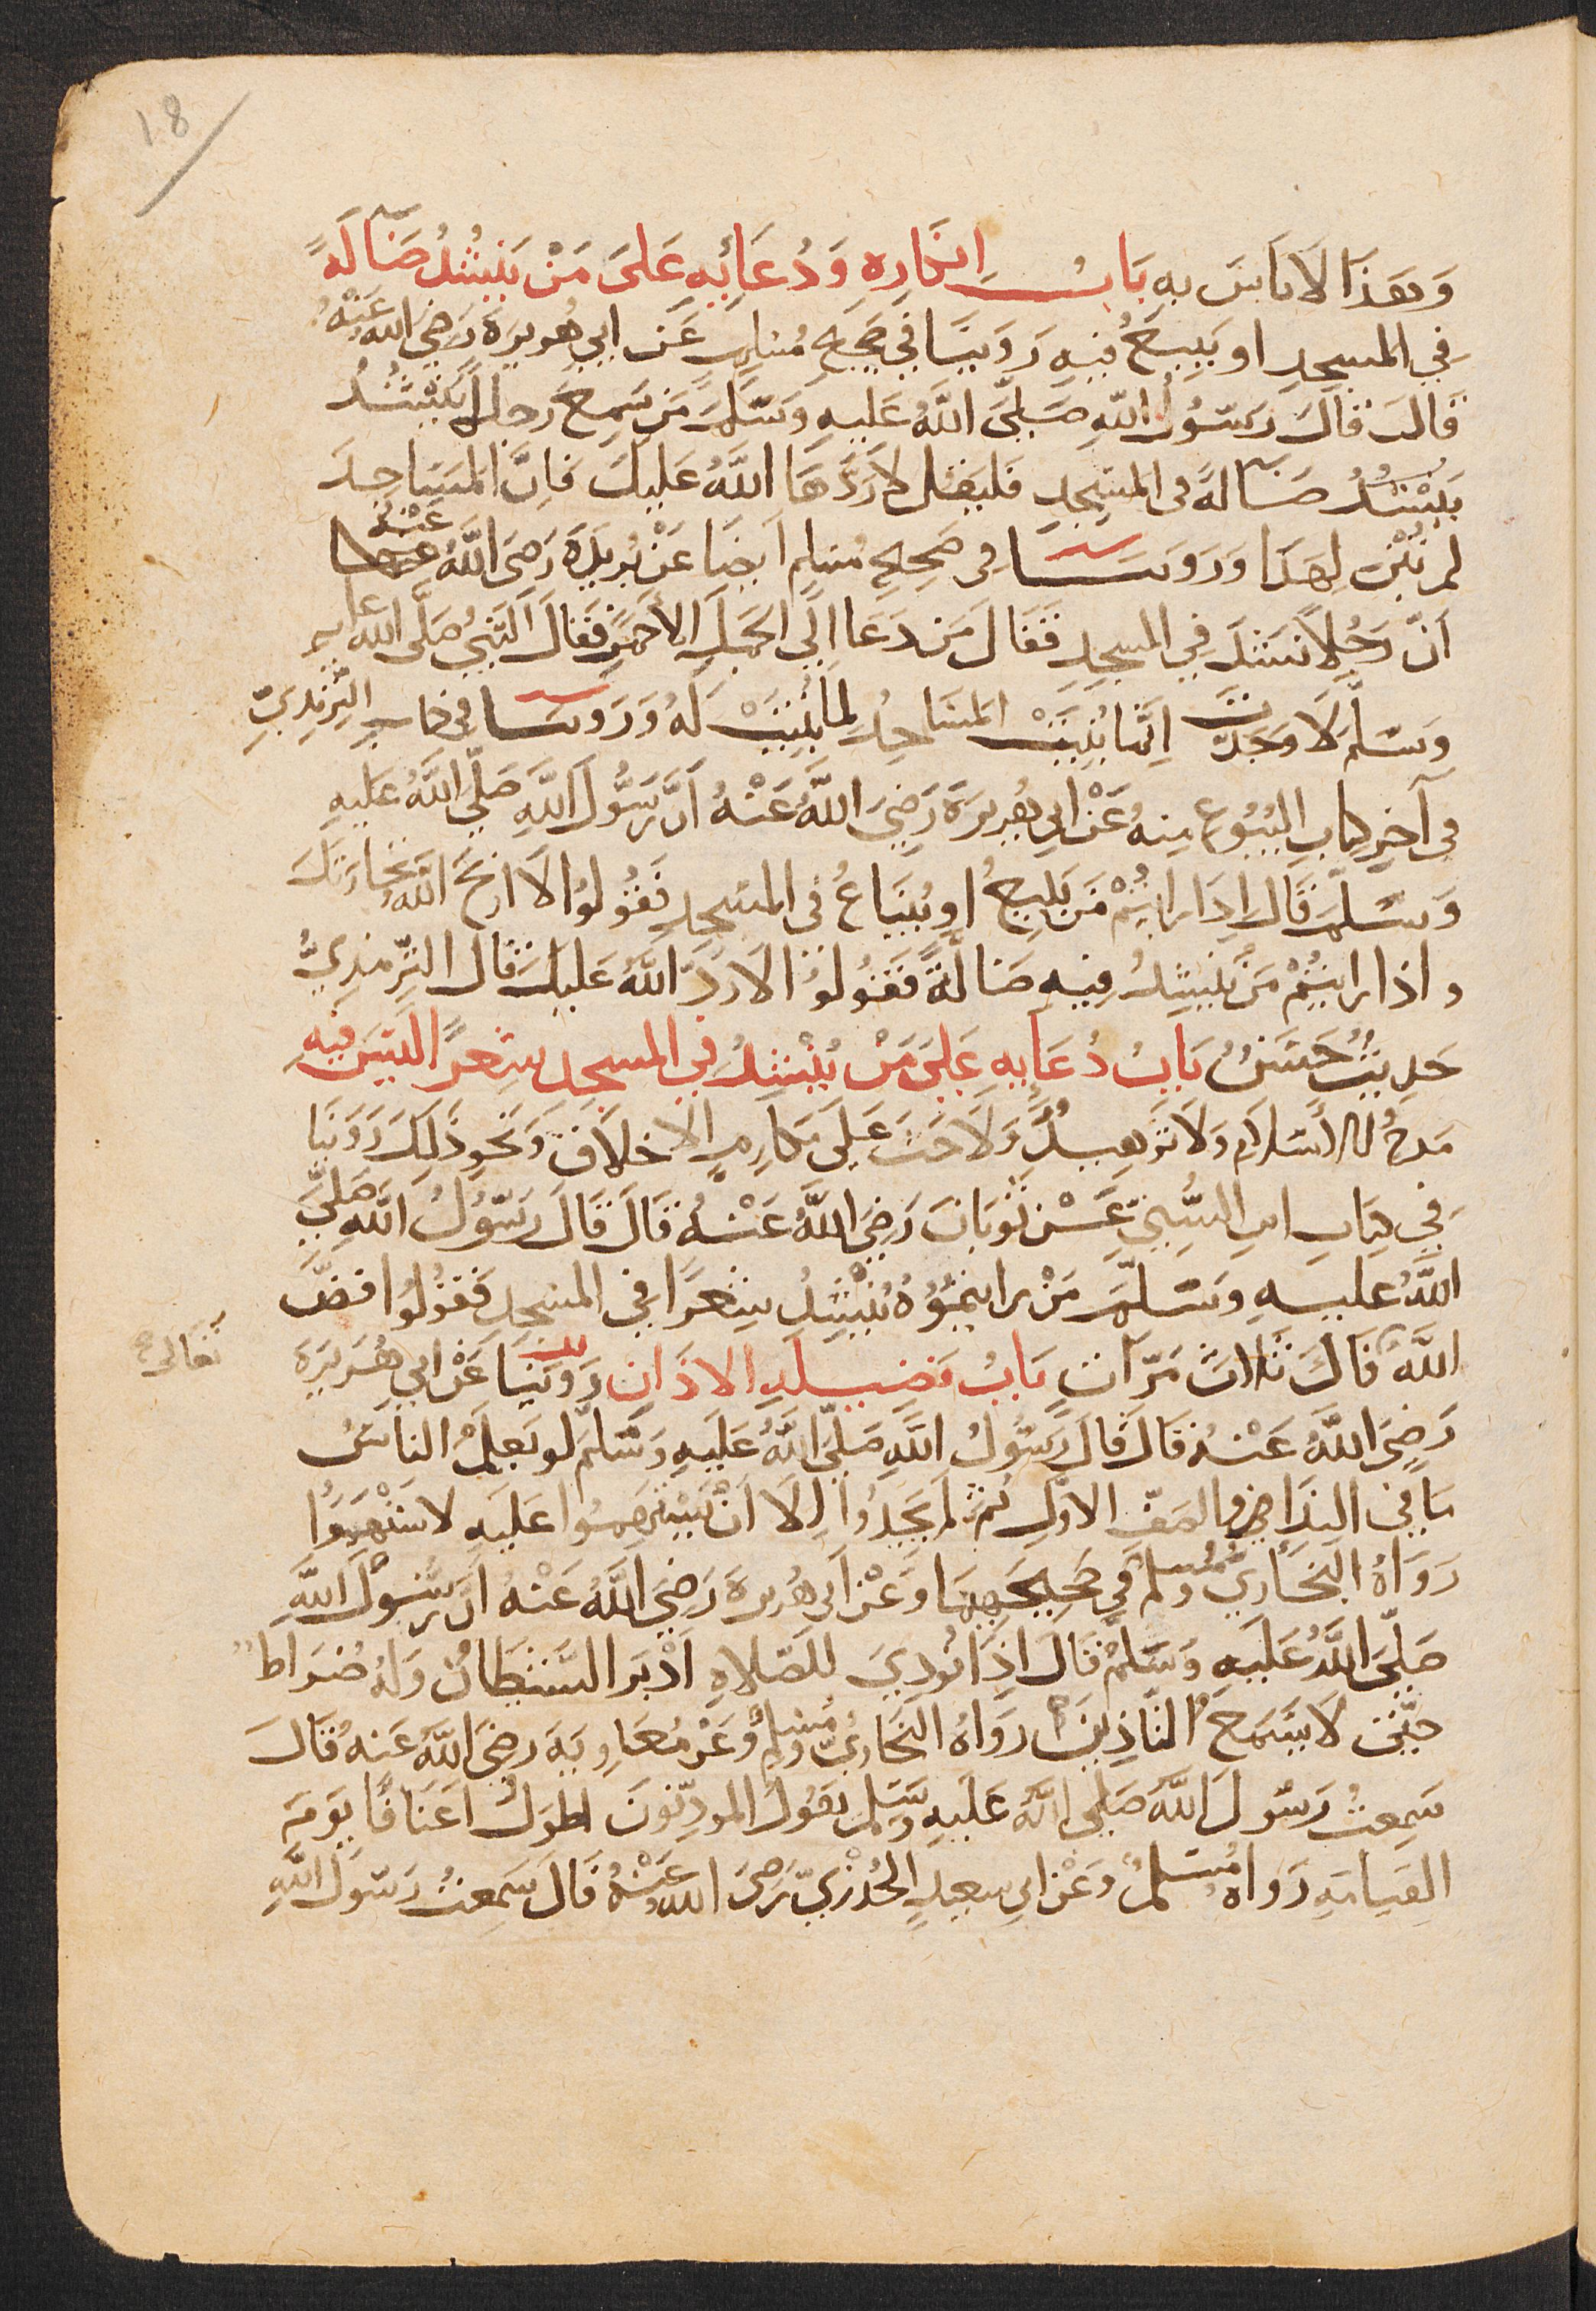 18
وَهَذَا لَا بَأسَ بِهِ بَابُ اِنكَارِهِ وَدُعَائِهِ عَلَى مَنْ يَنْشُدُ ضَالَّةً
فِي المسجِدِ او يَبِيعُ فيهِ رَوَينَا في صَحِيحِ مُسلِمٍ عَن ابي هُرَيرَةَ رَضِيَ الله عَنْهُ
قَالَ قَالَ رَسُولُ اللهِ صَلَّى اللهُ عَلَيهِ وَسَلَّمَ مَن سَمِعَ رجلاً يَنْشُدُ
يَنْشُدُ ضَالةً في المسجِدِ فَليَقُل لا رَدَّهَا اللهُ عَلَيكَ فَاِنَّ المَسَاجِدَ
لم تُبْنَ لِهَذَا وَرَوينَا في صَحِيحِ مُسلِمٍ اَيضًا عَنْ بُرَيدَةَ رَضِيَ اللهُ عَنْهُ
اَنَّ رَجُلاً نَشَدَ فِي المسجِدِ فَقَالَ مَن دَعَا اِلَى الجَمَلِ الاَحمَرِ فَقَالَ النَّبِيُّ صَلَّى الله عليه
وَسَلَّمَ لَا وَجَدْتَ اِنَّمَا بُنِيَتْ المَسَاجِدُ لِمَا بُنِيَتْ لَهُ وَرَوينَا في كتابِ التِّرمِذِيِّ
في آخِرِ كتابِ البُيُوعِ مِنهُ عَنْ ابي هُرَيرَةَ رَضِيَ اللهُ عَنْهُ اَنَّ رَسُولَ اللهِ صَلَّى اللهُ عَلَيهِ
وَسَلَّمَ قَالَ اِذَا رَاَيتُمْ مَن يَبِيعُ او يَبتَاعُ في المسجِدِ فَقُولُوا لَا اربَحَ اللهُ تجَارَتَكَ
واذا رايتُمْ مَن يَنْشُدُ فِيهِ ضَالَّةً فَقُولُوا لَا رَدَّ اللهُ عَلَيكَ قَالَ التِّرمِذِيُّ
حَدِيثٌ حَسَنٌ بَابُ دُعَايِهِ عَلَى مَنْ يُنْشِدُ فِي المسجِد شِعرًا لَيسَ فيهِ
مَدحٌ للاسلامِ وَلَا تَزهِيدٌ وَلَا حَثٌّ عَلَى مَكَارِمِ الاخلَاقِ وَنَحوِ ذَلِكَ رَوَينَا
فِي كِتَابِ ابنِ السُّنِّيِّ عَنْ ثَوبَانَ رَضِيَ اللهُ عَنْهُ قَالَ قَالَ رَسُولُ اللهِ صَلَّى
اللهُ عليهِ وَسَلَّمَ مَنْ رايتمُوُهُ يُنْشِدُ شِعرًا فِي المسجِدِ فَقُولُوا فَضَّ
اللهُ فَاكَ ثَلَاثَ مَرَّاتٍ بَابُ فَضِيلَةِ الاذَانِ رَوَينَا عَنْ ابي هُرَيرَةَ
تعالى
رَضِيَ اللهُ عَنْهُ قَالَ قَالَ رَسُولُ اللهِ صَلَّى اللهُ عَلَيهِ وَسَلَّمَ لو يَعلَمُ الناسُ
مَا في النِّدَاءِ والصَفِّ الاوَّلِ ثُمَّ لَم يَجِدُوا اِلَا اَنْ يَسْتَهِمُوا عَلَيهِ لَاسْتَهَمُوا
رَوَاهُ البُخَارِيُّ ومُسلم فِي صَحِيحَيهِمَا وَعَنْ ابي هُرَيرَةَ رَضِيَ اللهُ عَنْهُ اَنَّ رَسُولَ اللهِ
صَلَّى اللهُ عَلَيهِ وَسَلَّمَ قَالَ اِذَا نُودِيَ لِلصَّلَاةِ اَدْبَرَ الشَّيطَانُ وَلَهُ ضُرَاطٌ
حَتَّى لَا يَسْمَعَ التَّاذِينَ رَوَاهُ البُخَارِيُّ ومُسلِمٌ وَعَنْ مُعَاوِيَةَ رضِيَ اللهُ عَنهُ قَالَ
سَمِعتُ رَسُولَ اللهِ صَلَّى اللهُ عَلَيهِ وَسَلم يَقُولُ المؤذِّنُونَ اَطوَلُ اَعنَاقًا يَومَ
القِيَامَةِ رَوَاهُ مُسْلمٌ وَعَنْ ابي سعِيدٍ الخُدْرِيِّ رَضِيَ الله عَنْهُ قَالَ سَمِعتُ رَسُولَ اللهِ